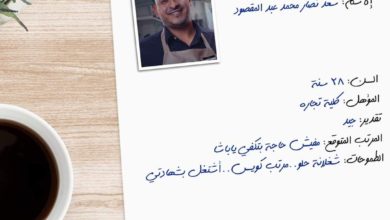 الإسم: سعد نصار محمد عبد المقصود
السن: ٢٨ سنة
المؤهل: كلية تجاره
تقدير: جيد
المرتب المتوقع: مفيش حاجة بتكفي ياباشا
الطموحات: شغلانة حلو..مرتب كويس..أشتغل بشهادتي